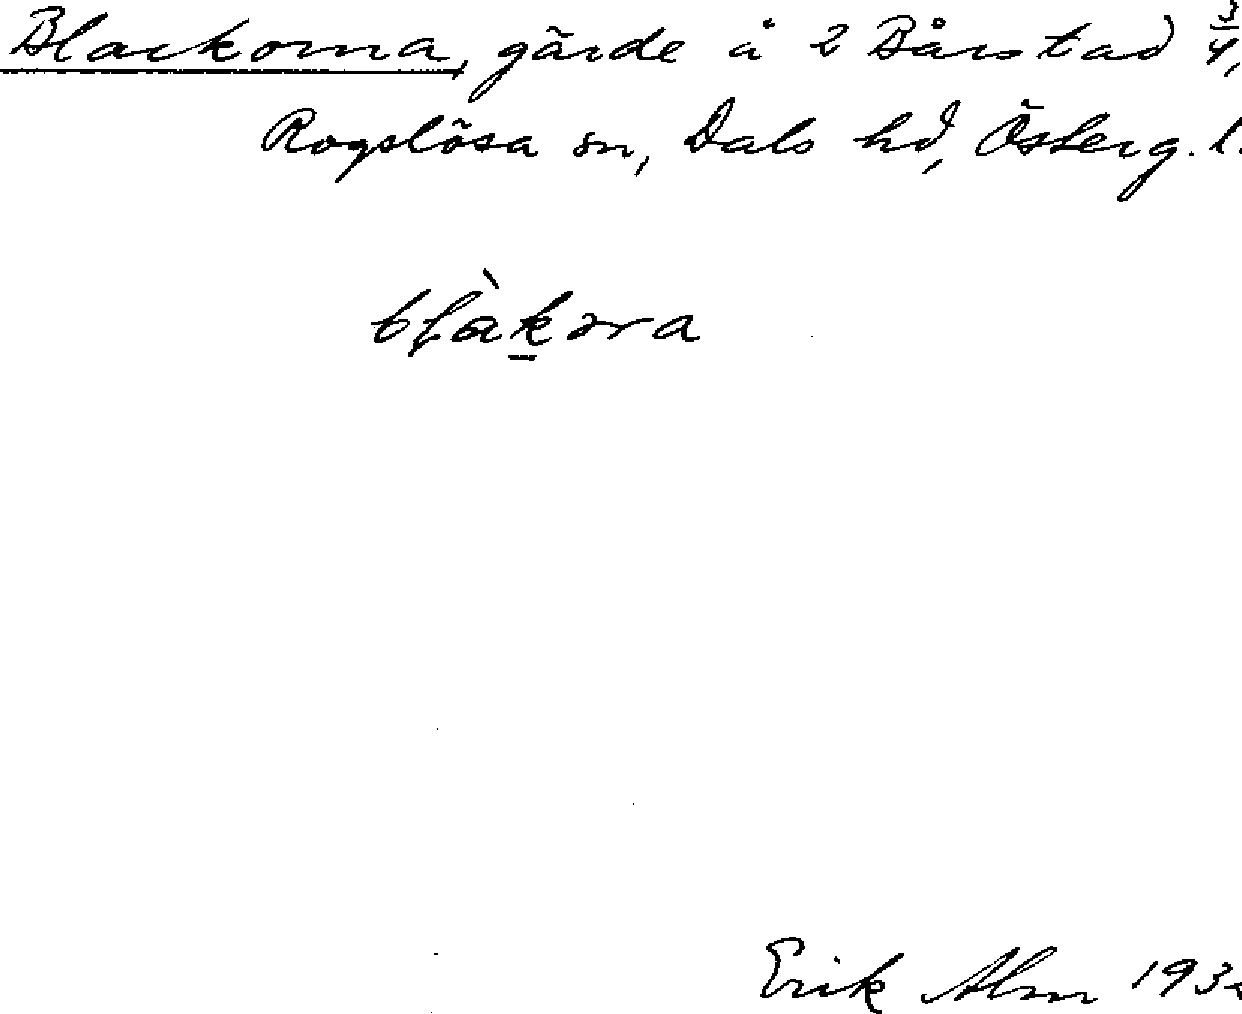 Blackorna, gärde å 2 Bårstad 3/4,
Rogslösa sn, Dals hd, Österg. l.
blàkora
Erik Alm